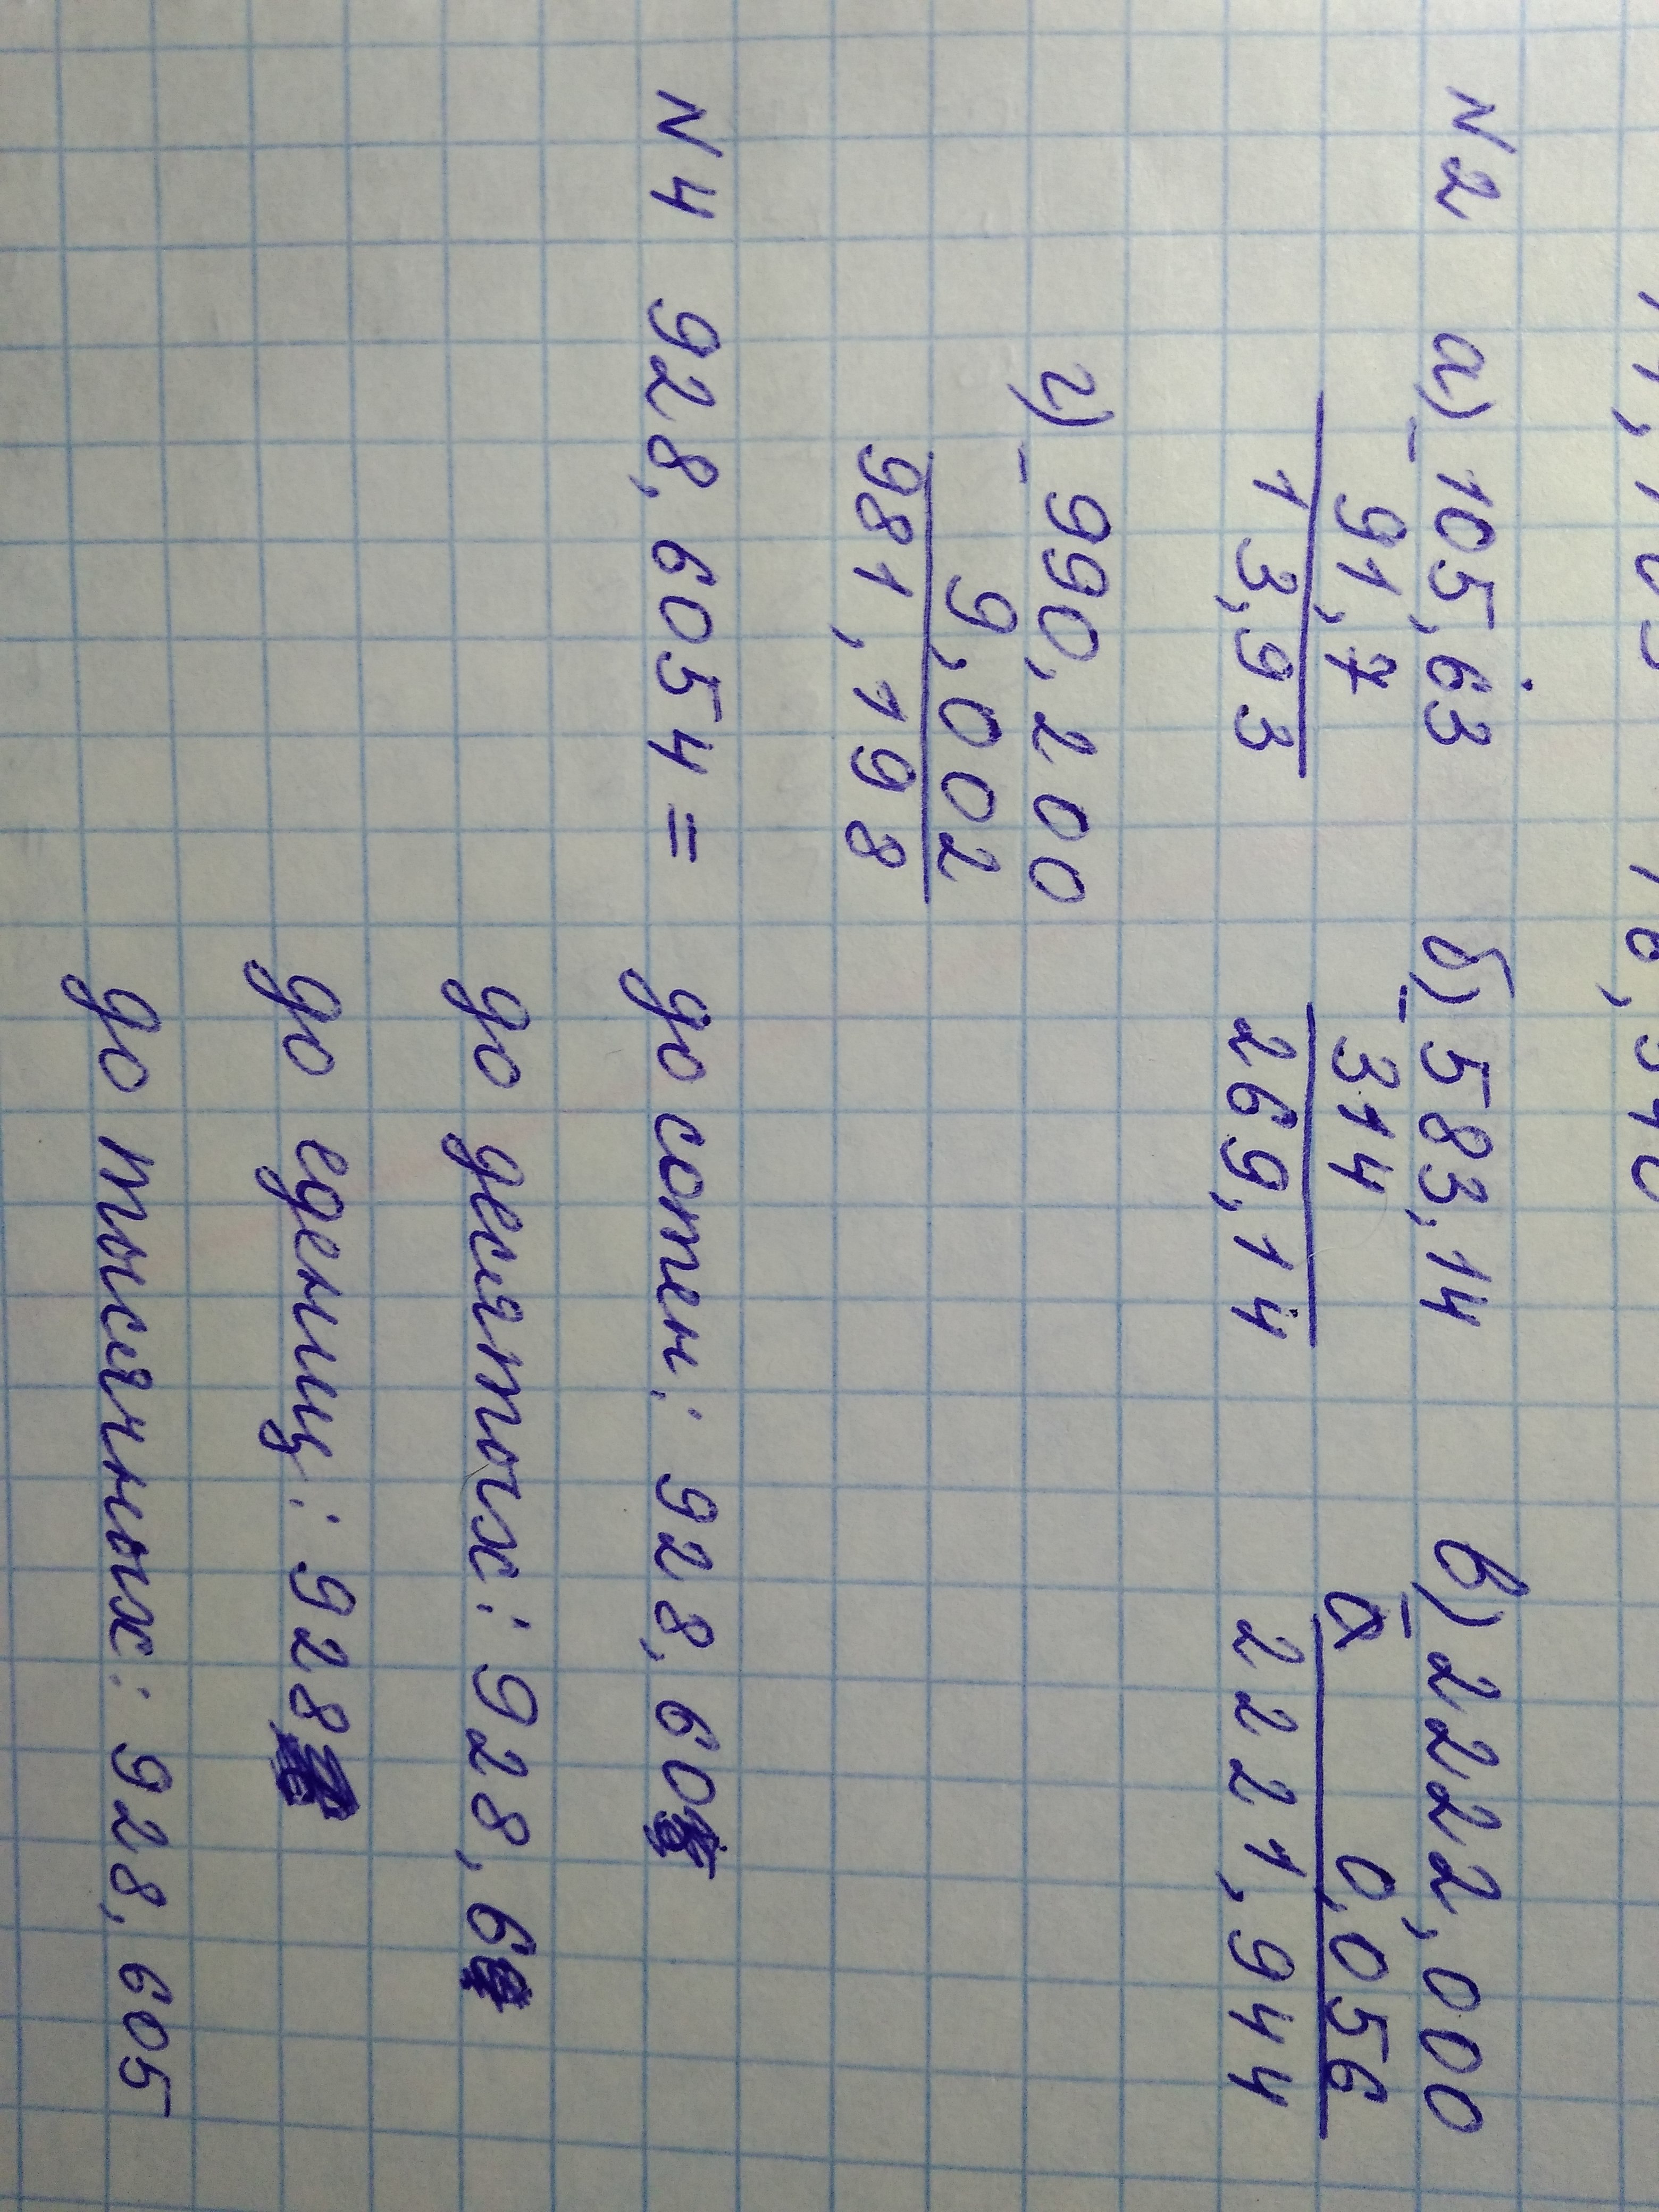 N2 а) 105,63 б) 583,14 в) 2222,000
- 91,7 - 314 - 0,056
13,93 269,14 2221,944
г) 990,200
- 9,002
981,198
N4 928,6054 = до сотен: 928,60
до десятых: 928,6
до единиц: 928
до тысячных: 928,605